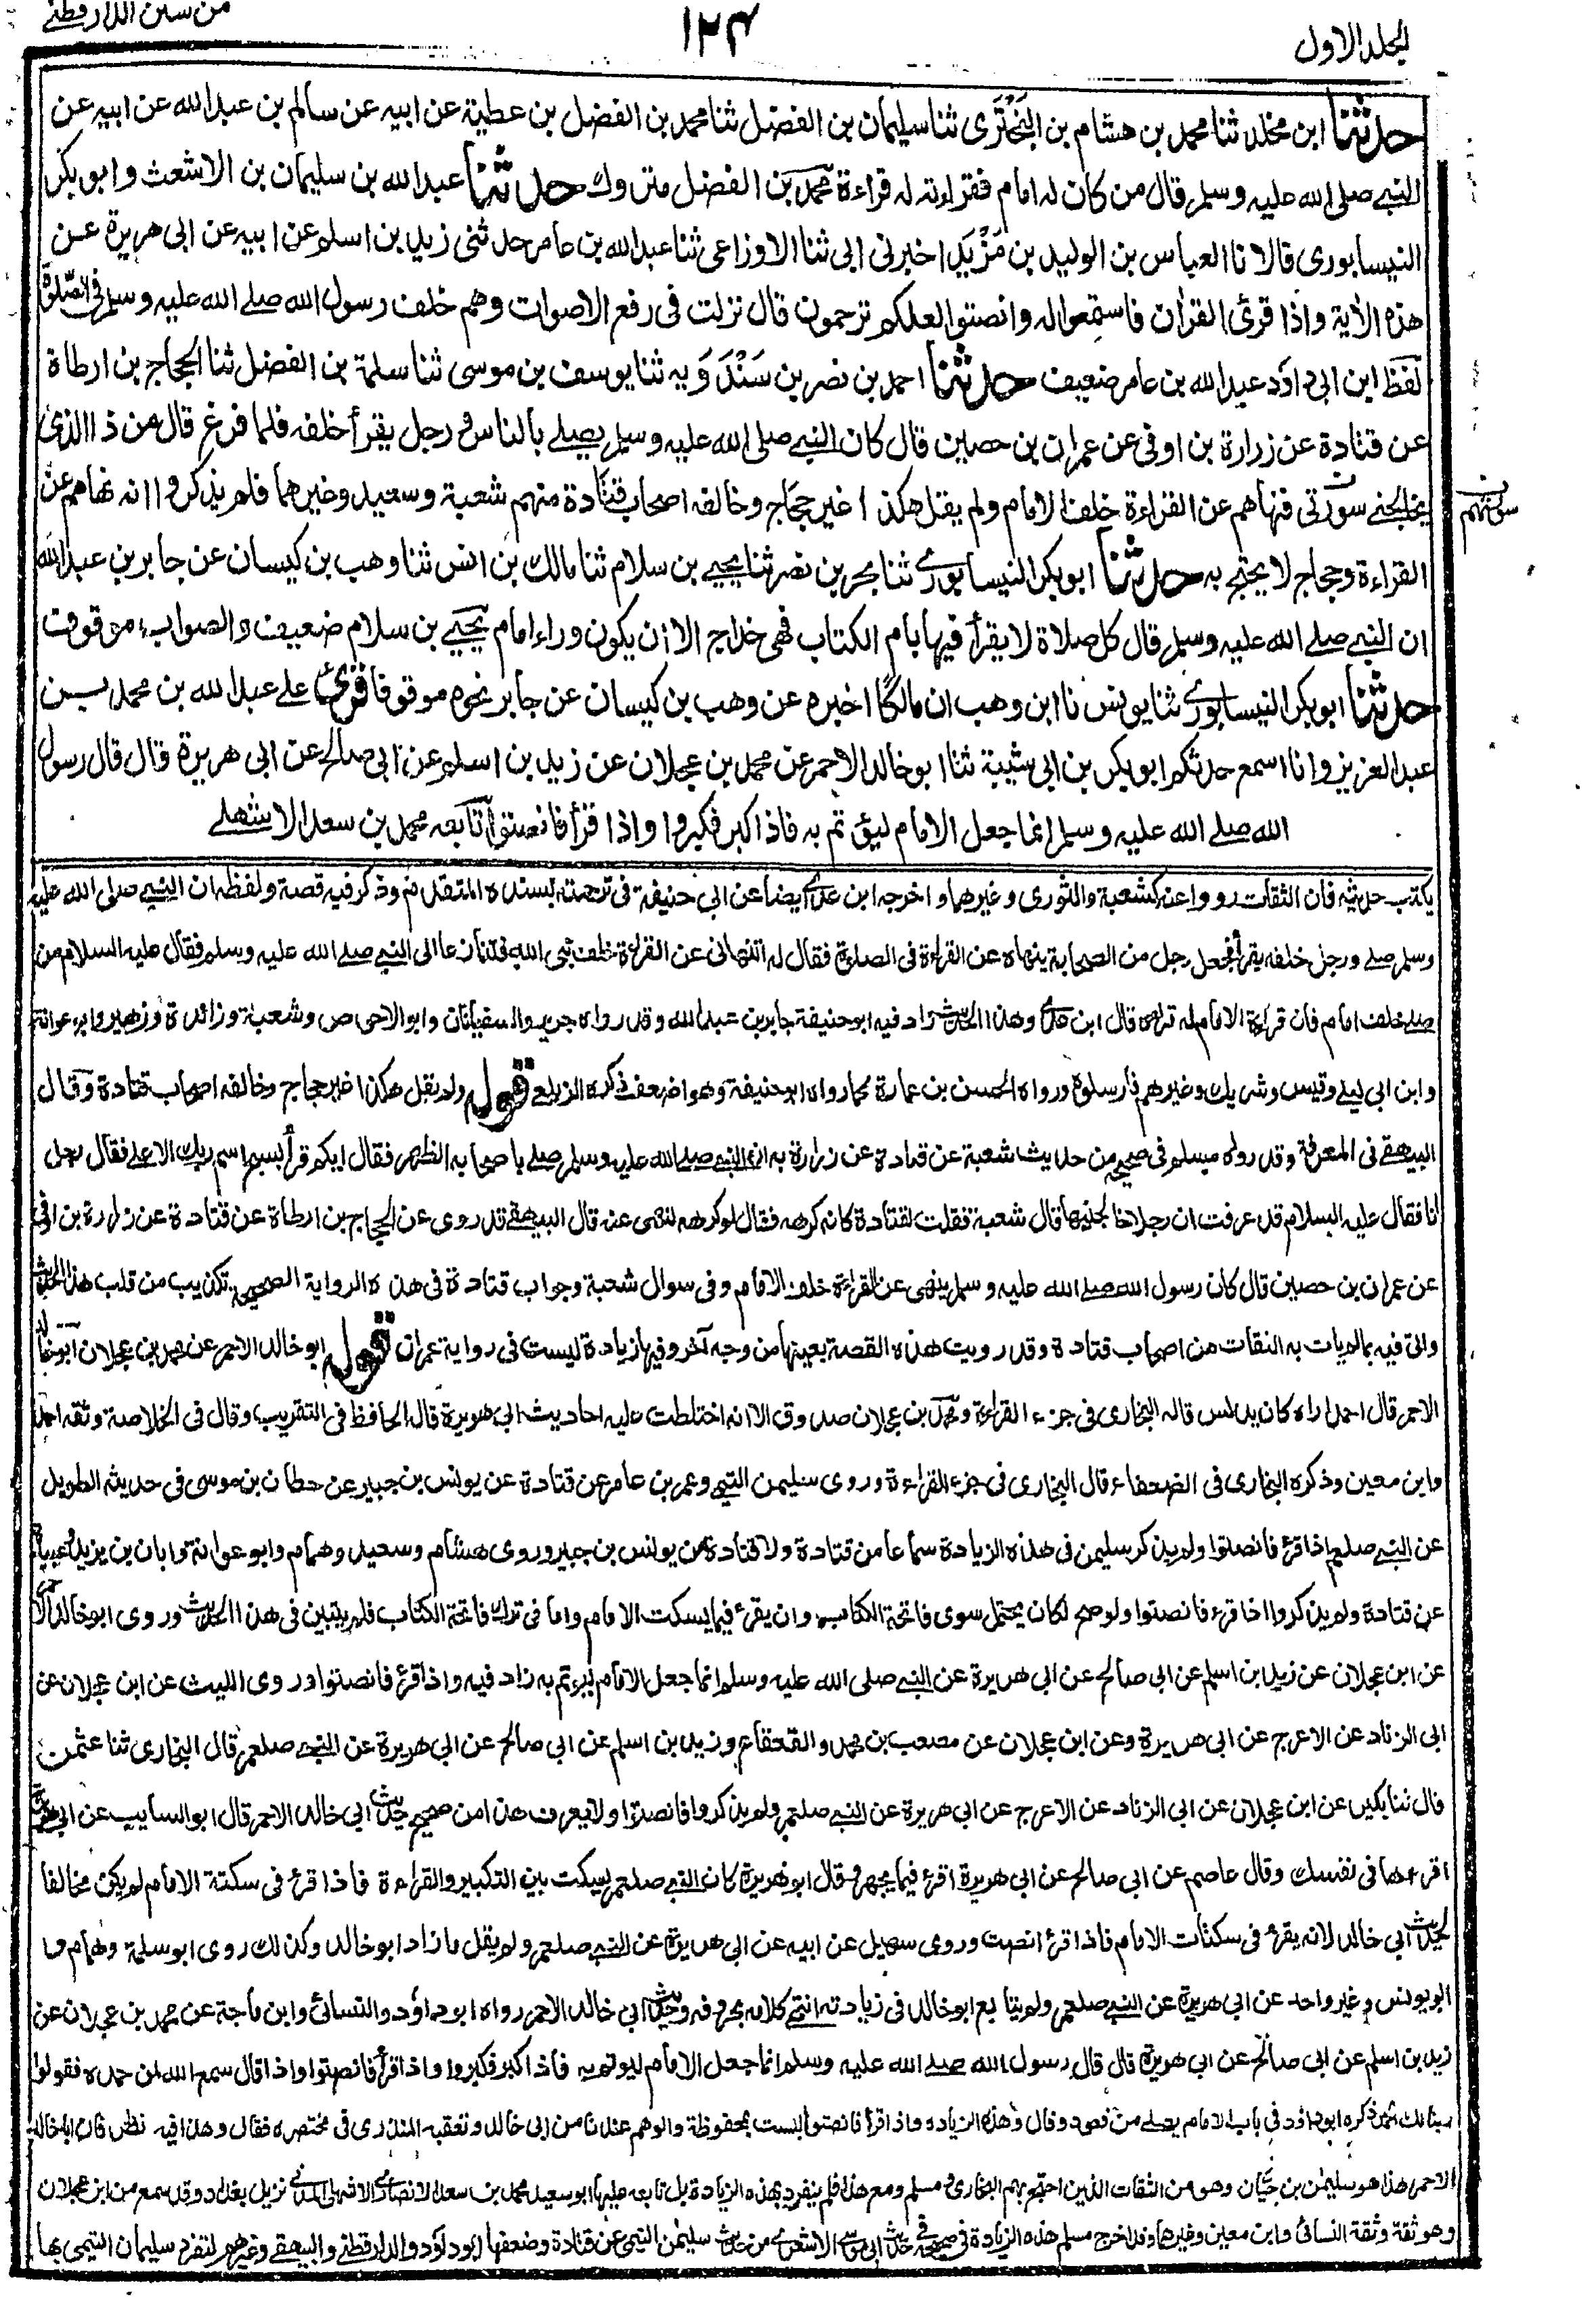 المجلد الاول
١٢٤
من سنن الدارقطنے
حدثنا ابن مخلد ثنا محمد بن هشام بن البَخْتَرى ثنا سليمان بن الفضل ثنا محمد بن الفضل بن عطية عن ابيه عن سالم بن عبد الله عن ابيه عن
النبے صلى الله عليه وسلم قال من كان له امام فقراءته له قراءة محمد بن الفضل متروك حدثنا عبد الله بن سليمان بن الاشعث و ابو بكر
النيسابورى قالا نا العباس بن الوليد بن مَزْيَد اخبرنى ابى ثنا الاوزاعى ثنا عبد الله بن عامر حدثنى زيد بن اسلم عن ابيه عن ابى هريرة عن
هذه الاٰية واذا قرئ القراٰن فاستمعوا له وانصتوا لعلكم ترحمون قال نزلت فى رفع الاصوات وهم خلف رسول الله صلے الله عليه وسلم فى الصّلوة
لفظ ابن ابى داؤد عبد الله بن عامر ضعيف حدثنا احمد بن نصر بن سَنْدَوَيه ثنا يوسف بن موسى ثنا سلمة بن الفضل ثنا الحجاج بن ارطاة
عن قتادة عن زرارة بن اوفى عن عمران بن حصين قال كان النبے صلى الله عليه وسلم يصلے بالناس و رجل يقرأ خلفه فلما فرغ قال من ذا الذى
يخالجنے سورتى فنهاهم عن القراءة خلف الامام ولم يقل هكذا غير حجاج وخالفه اصحاب قتادة منهم شعبة وسعيد وغيرهما فلم يذكروا انه نهاهم عن
القراءة وحجاج لا يحتج به حدثنا ابو بكر النيسابورے ثنا بحر بن نصر ثنا يحيے بن سلام ثنا مالك بن انس ثنا وهب بن كيسان عن جابر بن عبد الله
ان النبے صلے الله عليه وسلم قال كل صلاة لا يقرأ فيها بام الكتاب فهى خداج الا ان يكون وراء امام يحيے بن سلام ضعيف والصواب موقوف
حدثنا ابو بكر النيسابورے ثنا يونس نا ابن وهب ان مالكًا اخبره عن وهب بن كيسان عن جابر نحوه موقوفا قرئ على عبد الله بن محمد بن
عبد العزيز وانا اسمع حدثكم ابو بكر بن ابى شيبة ثنا ابو خالد الاحمر عن محمد بن عجلان عن زيد بن اسلم عن ابى صالح عن ابى هريرة قال قال رسول
الله صلے الله عليه وسلم انما جعل الامام ليؤتم به فاذا كبر فكبروا واذا قرأ فانصتوا تابعه محمد بن سعد الاشهلے
يكتب حديثه فان الثقات رووا عنه كشعبة والثورى وغيرهما واخرجه ابن عدے ايضا عن ابى حنيفة فى ترجمته بسنده المتقدم وذكر فيه قصة ولفظه ان النبے صلى الله عليه
وسلم صلے ورجل خلفه يقرأ فجعل رجل من الصحابة ينهاه عن القراءة فى الصلوة فقال له اتنهانى عن القراءة خلف نبى الله فتنازعا الى النبے صلے الله عليه وسلم فقال عليه السلام من
صلے خلف امام فان قراءة الامام له قراءة قال ابن عدے وهذا الحديث زاد فيه ابو حنيفة جابر بن عبد الله وقد رواه جرير والسفيانان وابو الاحوص وشعبة وزائدة وزهير وابو عوانة
وابن ابى ليلے وقيس وشريك وغيرهم فارسلوه ورواه الحسن بن عمارة كما رواه ابو حنيفة وهو اضعف ذكره الزيلعے قوله ولم يقل هكذا غير حجاج وخالفه اصحاب قتادة وقال
البيهقے فى المعرفة وقد رواه مسلم فى صحيحه من حديث شعبة عن قتادة عن زرارة به ان النبے صلے الله عليه وسلم صلے باصحابه الظهر فقال ايكم قرأ بسبح اسم ربك الاعلے فقال رجل
انا فقال عليه السلام قد عرفت ان رجلا خالجنيها قال شعبة فقلت لقتادة كانه كرهه فقال لو كرهه لنهى عنه قال البيهقے قد روى عن الحجاج بن ارطاة عن قتادة عن زرارة بن اوفى
عن عمران بن حصين قال كان رسول الله صلے الله عليه وسلم ينهى عن القراءة خلف الامام وفى سوال شعبة وجواب قتادة فى هذه الرواية الصحيحة تكذيب من قلب هذا الحديث
واتى فيه بما لم يات به الثقات من اصحاب قتادة وقد رويت هذه القصة بعينها من وجه آخر وفيها زيادة ليست فى رواية عمران قوله ابو خالد الاحمر عن محمد بن عجلان ابو خالد
الاحمر قال احمد اراه كان يدلس قاله البخارى فى جزء القراءة ومحمد بن عجلان صدوق الا انه اختلطت عليه احاديث ابى هريرة قال الحافظ فى التقريب وقال فى الخلاصة وثقه احمد
وابن معين وذكره البخارى فى الضعفاء قال البخارى فى جزء القراءة وروى سليمن التيمى وعمر بن عامر عن قتادة عن يونس بن جبير عن حطان بن موسى فى حديثه الطويل
عن النبے صلعم اذا قرئ فانصتوا ولم يذكر سليمن فى هذه الزيادة سماعا من قتادة ولا قتادة من يونس بن جبير وروى هشام وسعيد وهمام وابو عوانة وابان بن يزيد وعبيدة
عن قتادة ولم يذكروا اذا قرء فانصتوا ولو صح لكان يحتمل سوى فاتحة الكتاب وان يقرء فيما يسكت الامام واما فى ترك فاتحة الكتاب فلم يتبين فى هذا الحديث وروى ابو خالد الاحمر
عن ابن عجلان عن زيد ابن اسلم عن ابى صالح عن ابى هريرة عن النبے صلى الله عليه وسلم انما جعل الامام ليؤتم به زاد فيه واذا قرئ فانصتوا وروى الليث عن ابن عجلان عن
ابى الزناد عن الاعرج عن ابى هريرة وعن ابن عجلان عن مصعب بن محمد والقعقاع وزيد بن اسلم عن ابى صالح عن ابى هريرة عن النبے صلعم قال البخارى ثنا عثمن
قال ثنا بكير عن ابن عجلان عن ابى الزناد عن الاعرج عن ابى هريرة عن النبے صلعم ولم يذكروا فانصتوا ولا يعرف هذا من صحيح حديث ابى خالد الاحمر قال ابو السايب عن ابى هريرة
اقرء بها فى نفسك وقال عاصم عن ابى صالح عن ابى هريرة اقرئ فيما يجهر وقال ابو هريرة كان النبے صلعم يسكت بين التكبير والقراءة فاذا قرئ فى سكتة الامام لم يكن مخالفا
لحديث ابى خالد لانه يقرء فى سكتات الامام فاذا قرئ انصت وروى سهيل عن ابيه عن ابى هريرة عن النبے صلعم ولم يقل ما زاد ابو خالد وكذلك روى ابو سلمة وهمام وا
ابو يونس وغير واحد عن ابى هريرة عن النبے صلعم ولم يتابع ابو خالد فى زيادته انتهے كلامه بحروفه وحديث ابى خالد الاحمر رواه ابو داؤد والنسائى وابن ماجة عن محمد بن عجلان عن
زيد بن اسلم عن ابى صالح عن ابى هريرة قال قال رسول الله صلے الله عليه وسلم انما جعل الامام ليؤتم به فاذا كبر فكبروا واذا قرأ فانصتوا واذا قال سمع الله لمن حمده فقولوا
ربنا لك الحمد ذكره ابو داؤد فى باب الامام يصلے من قعود وقال وهذه الزيادة واذا قرأ فانصتوا ليست بمحفوظة والوهم عندنا من ابى خالد وتعقبه المنذرى فى مختصره فقال وهذا فيه نظر فان ابا خالد
الاحمر هذا هو سليمن بن حيان وهو من الثقات الذين احتج بهم البخارى و مسلم ومع هذا فلم ينفرد بهذه الزيادة بل تابعه عليها ابو سعيد محمد بن سعد الانصارى الاشهلى المدنى نزيل بغداد وقد سمع من ابن عجلان
وهو ثقة وثقة النسائى وابن معين وغيرهما وقد اخرج مسلم هذه الزيادة فى صحيحه فى حديث ابى موسى الاشعرى من حديث سليمن التيمى عن قتادة وضعفها ابو داؤد والدارقطنے والبيهقے وغيرهم لتفرد سليمان التيمى بها